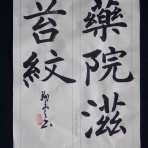 藥院滋
苔紋